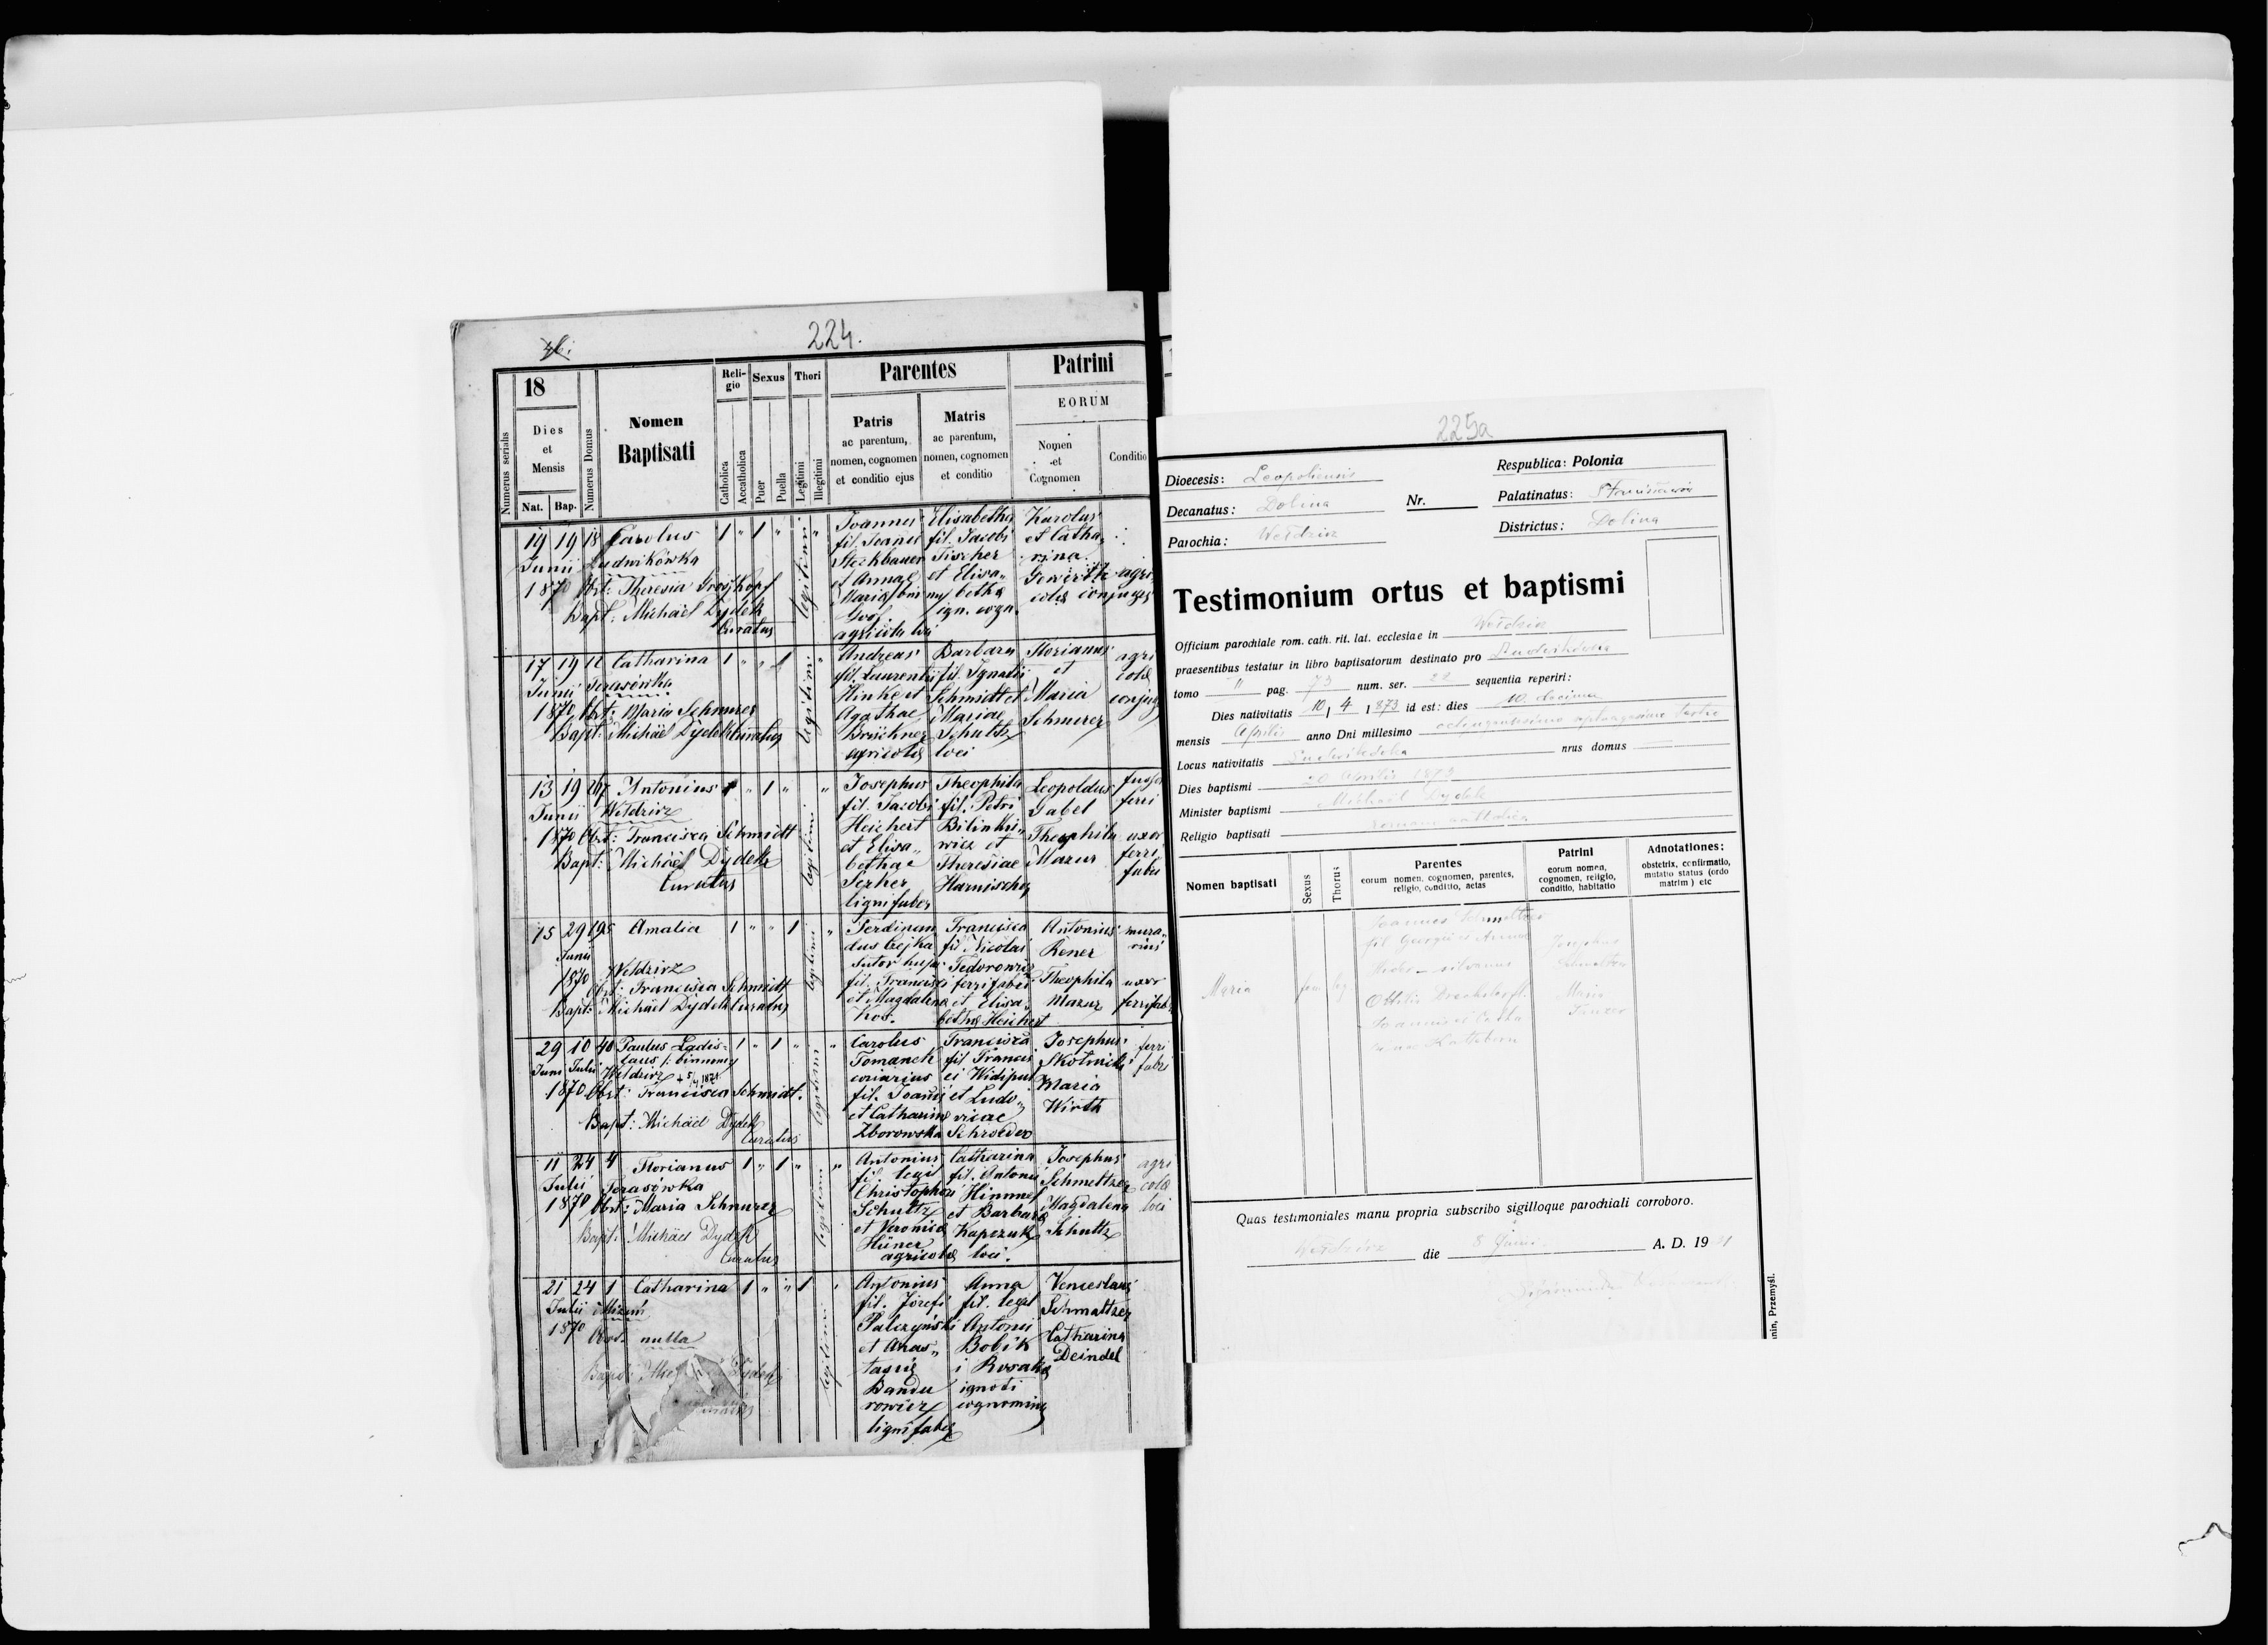 224.
18
Numerus serialis
Dies
et
Mensis
Nat. Bap.
Numerus Domus
Nomen
Baptisati
Reli-
gio
Catholica
Accatholica
Sexus
Puer
Puella
Thori
Legitimi
Illegitimi
Parentes
Patris
ac parentum,
nomen, cognomen
et conditio ejus
Matris
ac parentum,
nomen, cognomen
et conditio
Patrini
EORUM
Nomen
et
Cognomen
Conditio
19 19 18 Carolus 1 " 1 "
Junii Ludwikówka
1870 Obst: Theresia Grosskopf
Bapt: Michael Dydek
Curatus
legitimi
Joannes
fil. Joanis
Steckbauer
et Annae
Maria
agricola loci
Elisabetha
fil. Jacobi
Fischer
et Elisa„
betha
ign. cogn.
Karolus
et Catha„
rina
agri
colae conjuges
17 19 12 Catharina 1 " " 1
Junii
1870 Obst: Maria Schnurer
Bapt: Michäel Dydek Curatus
legitimi
Andreas
fil. Laurentii
Hinkert
Agathae
Brückner
agricola
Barbara
fil. Ignatii
Schmidt et
Mariae
Schultz
loci
Florianus
et
Maria
Schnurer
agri
colae
conjug
13 19 267 Antonius 1 " 1 "
Junii Wełdzirz
1870 Obst: Francisca Schmidt
Bapt: Michäel Dydek
Curatus
legitimi
Josephus
fil. Jacobi
Heichert
et Elisa„
bethae
Serker
lignifaber
Theophila
fil. Petri
Bilinkie„
wicz et
Theresiae
Harnischa
Leopoldus
Gabel
Theophila
Mazur
ferri
uxor
ferri
fabri
15 29 195 Amalia 1 " " 1
Junii
1870 Wełdzirz
Obst: Francisca Schmidt
Bapt: Michäel Dydek Curatus
legitimi
Ferdinan
dus Cejka
sutor
fil. Francisci
et Magdalena
Kos.
Francisca
fil Nicolai
Fedorowicz
ferrifabri
et Elisa„
betha Heichert
Antonius
Rener
Theophila
Mazur
mura„
rius
uxor
ferrifab
29 10 40 Paulus Ladis- 1 " 1 "
Juni Julii laus /: binomy
Wełdzirz + 5/4 1871
1870 Obst: Francisca Schmidt.
Bapt: Michäel Dydek
Curatus
legitimi
Carolus
Tomanek
coriarius
fil. Joanis
et Catharina
Zborowska
Francisca
fil Francis
ci Widipul
et Ludo„
vicae
Schroeder
Josephus
Skotnicki
Maria
Wirth
ferri
fabri
11 24 4 Florianus 1 " 1 "
Julii
1870 Obst: Maria Schnurer
Bapt: Michäel Dydek
Curatus
legitimi
Antonius
fil. legit
Christophori
Schultz
et Veronica
Hüner
agricola
Catharina
fil. Antonii
Himmel
et Barbara
Kapczuk
loci.
Josephus
Schmeltzer
Magdalena
Schultz
agri
cola
loci
21 24 1 Catharina 1 " " 1
Julii Mizuń
1870 Obst. nulla
Bapt: Dydek
legitimi
Antonius
fil. Józefi
Palczyński
et Anas„
tasiae
Bandu
rowicz
lignifaber
Anna
fil. legit
Antonii
Bobik
i Rosalia
ignoti
cognominis
Venceslaus
Schmaltzer
Catharina
Deindel
225a
Dioecesis: Leopoliensis
Decanatus: Dolina
Parochia: Wełdzirz
Nr.
Respublica: Polonia
Palatinatus: Stanisławów
Districtus: Dolina
Testimonium ortus et baptismi
Officium parochiale rom. cath. rit. lat. ecclesiae in Wełdzirz
praesentibus testatur in libro baptisatorum destinato pro Ludwikówka
tomo II pag. 73 num. ser. 22 sequentia reperiri:
Dies nativitatis 10 / 4 1873 id est: dies 10 decima
mensis Aprilis anno Dni millesimo octingentesimo septuagesimo tertio
Locus nativitatis Ludwikówka nrus domus
Dies baptismi 20 Aprilis 1873
Minister baptismi Michael Dydek
Religio baptisati romano catholica
Nomen baptisati
Sexus
Thorus
Parentes
eorum nomen, cognomen, parentes,
religio, conditio, aetas
Patrini
eorum nomen,
cognomen, religio,
conditio, habitatio
Adnotationes:
obstetrix, confirmatio,
mutatio status (ordo
matrim) etc
Maria
fem
leg
Joannes Schmeltzer
fil Georgii et Annae
silvanus
Ottilia
Joannis et
Josephus
Schmeltzer
Maria
Quas testimoniales manu propria subscribo sigilloque parochiali corroboro.
Wełdzirz die 8 Junii A. D. 19